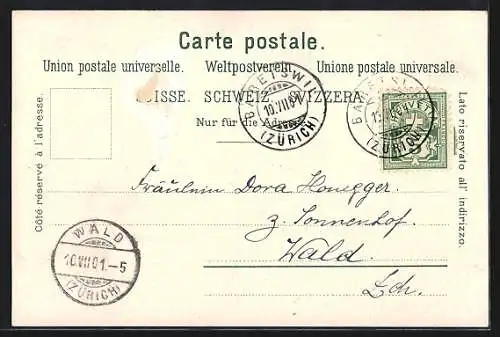 Carte postale.
Union postale universelle. Weltpostverein. Unione postale universale.
SUISSE. SCHWEIZ. SVIZZERA.
Nur für die Adresse.
Côté réservé à l'adresse.
Lato riservato all' indirizzo.
BÄRETSWIL
10.VII.01
(ZÜRICH)
BÄRETSWIL
(ZÜRICH)
HELVETIA
Fräulein Dora Honegger.
z. Sonnenhof.
Wald.
Zch.
WALD
10.VII.01.-5
(ZÜRICH)